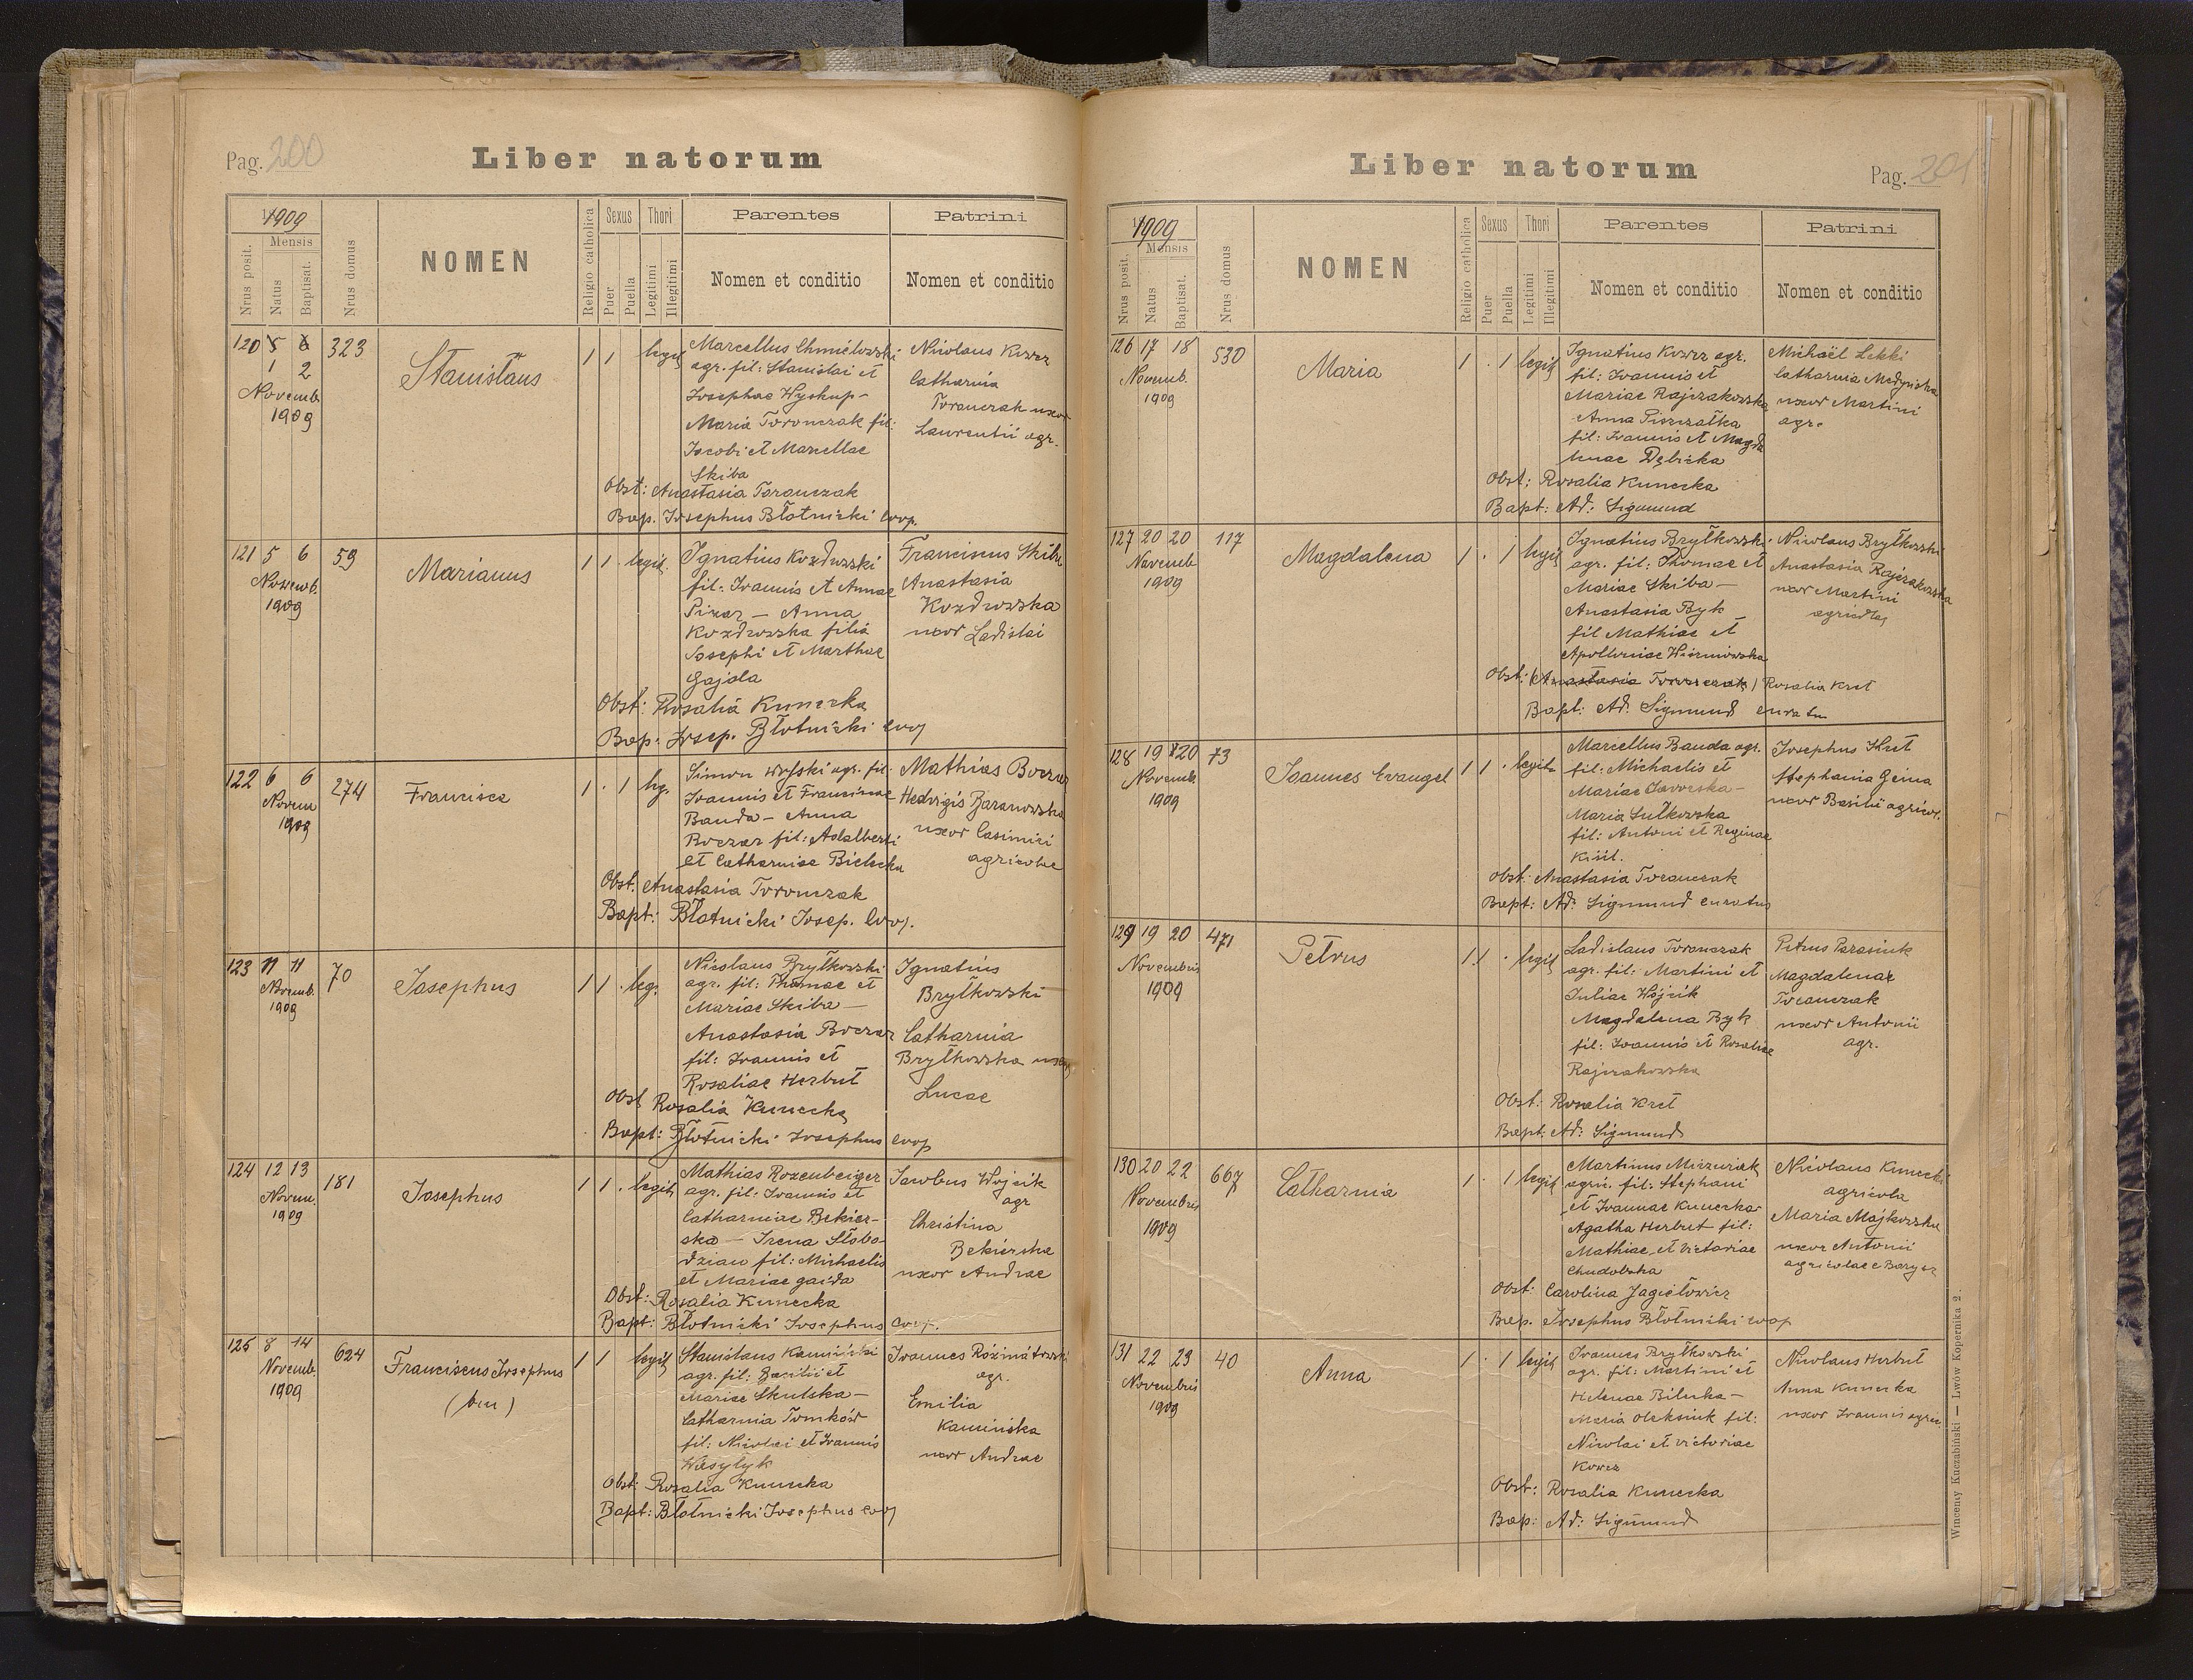 Pag. 200
Liber natorum
1909
Mensis
Nrus posit.
Natus
Baptisat.
Nrus domus
NOMEN
Religio catholica
Sexus
Puer
Puella
Thori
Legitimi
Illegitimi
Parentes
Nomen et conditio
Patrini
Nomen et conditio
120 5 6 323
1 2
Novemb.
1909
Stanislaus
1 1 legit
Marcellus Chmielowski
agr. fil: Stanislai et
Josephae Wyskup -
Maria Toronczak fil:
Jacobi et Marcellae
Skiba
Nicolaus Kowcz
Catharina
Toronczak uxor
Laurentii agr.
Obst: Anastasia Toronczak
Bap. Josephus Błotnicki coop.
121 5 6 59
Novemb.
1909
Marianus
1 1 . legit.
Ignatius Kozdrowski
fil: Joannis et Annae
Pizar - Anna
Kozdrowska filia
Josephi et Marthae
Gajda
Franciscus Skiba
Anastasia
Kozdrowska
uxor Ladislai
Obst: Rosalia Kunecka
Bap: Josep. Błotnicki coop
122 6 6 274
Novem
1909
Francisca
1 . 1 leg.
Simon agr. fil.
Joannis et Franciscae
Bauda - Anna
Boczar fil: Adalberti
et Catharinae Bielecka
Mathias Boczar
Hedvigis Baranowska
uxor Casimiri
agricolae
Obst. Anastasia Toronczak
Bapt: Błotnicki Josep. Coop.
123 11 11 70
Novemb.
1909
Josephus
1 1 . leg.
Nicolaus Bryłkowski
agr. fil: Thomae et
Mariae Skiba -
Anastasia Boczar
fil: Joannis et
Rosaliae Herbut
Ignatius
Bryłkowski
Catharina
Bryłkowska uxor
Lucae
Obst Rosalia Kunecka
Bapt: Błotnicki Josephus coop
124 12 13 181
Novem.
1909
Josephus
1 1 . legit
Mathias Rozenberger
agr. fil: Joannis et
Catharinae Bekier-
ska - Irena Słobo-
dzian fil: Michaelis
et Mariae gaida
Jacobus Wojcik
agr
Christina
Bekierska
uxor Andreae
Obst: Rosalia Kunecka
Bapt: Błotnicki Josephus Coop.
125 8 14 624
Novemb.
1909
Franciscus Josephus
(bin)
1 1 legit
Stanislaus Kamiński
agr. fil: Basilii et
Mariae Skulska -
Catharina Tomków
fil: Nicolai et Joannis
Wasylyk
Joannes
agr.
Emilia
Kamińska
uxor Andreae
Obst: Rosalia Kunecka
Bapt: Błotnicki Josephus coop
Liber natorum
Pag. 201
1909
Mensis
Nrus posit.
Natus
Baptisat.
Nrus domus
NOMEN
Religio catholica
Sexus
Puer
Puella
Thori
Legitimi
Illegitimi
Parentes
Nomen et conditio
Patrini
Nomen et conditio
126 17 18 530
Novemb.
1909
Maria
1 . 1 legit
Ignatius Kowcz agr.
fil: Joannis et
Mariae Rajczakowska
Anna Piszczałka
fil: Joannis et Magda
lenae Dębicka
Michaël Lekki
Catharina Medyńska
uxor Martini
agr.
Obst: Rosalia Kunecka
Bapt: Ad: Sigmund
127 20 20 117
Novemb
1909
Magdalena
1 . 1 legit
Ignatius Bryłkowski
agr. fil: Thomae et
Mariae Skiba -
Anastasia Byk
fil Mathiae et
Apolloniae Wiśniowska
Nicolaus Bryłkowski
Anastasia Rajczakowska
uxor Martini
agricolae
Obst: (Anastasia Toronczak) Rosalia Kret
Bapt: Ad: Sigmund curatus
128 19 20 73
Novemb.
1909
Joannes Evangel
1 1 . legit
Marcellus Bauda agr.
fil: Michaelis et
Mariae Jaworska -
Maria Sułkowska
fil: Antoni et Reginae
Kisil.
Josephus Kret
Stephania Geina
uxor Basilii agricol.
Obst: Anastasia Toronczak
Bapt: Ad: Sigmund curatus
129 19 20 471
Novembris
1909
Petrus
1 1 . legit
Ladislaus Toronczak
agr. fil: Martini et
Juliae Wójcik
Magdalena Byk
fil: Joannis et Rosaliae
Rajczakowska
Petrus Parasiuk
Magdalenae
Toronczak
uxor Antonii
agr.
Obst: Rosalia Kret
Bapt: Ad: Sigmund
130 20 22 667
Novembris
1909
Catharina
1 . 1 legit
Martinus
agric. fil: Stephani
et Joannae Kunecka
Agatha Herbut fil:
Mathiae et Victoriae
Chudobska
Nicolaus Kunecki
agricola
Maria Majkowska
uxor Antonii
agricolae
Obst: Carolina Jagiełowicz
Bap. Josephus Błotnicki coop
131 22 23 40
Novembris
1909
Anna
1 . 1 legit
Joannes Bryłkowski
agr. fil: Martini et
Helenae Bilecka -
Maria Oleksiuk fil:
Nicolai et Victoriae
Kowcz
Nicolaus Herbut
Anna Kunecka
uxor Joannis agric.
Obst: Rosalia Kunecka
Bap: Ad: Sigmund
Wincenty Kuczabiński — Lwów Kopernika 2.